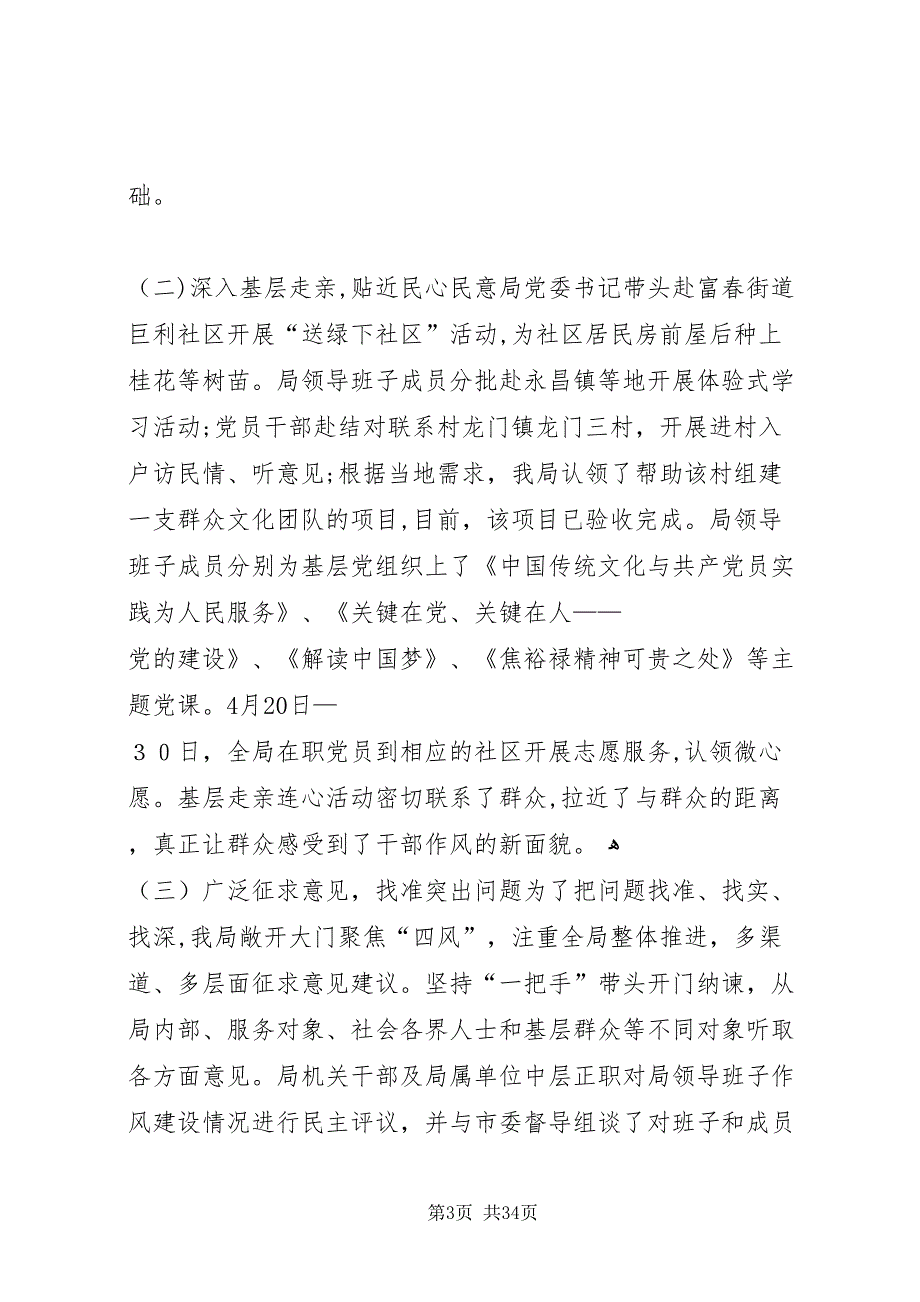 础。
（二)深入基层走亲,贴近民心民意局党委书记带头赴富春街道
巨利社区开展“送绿下社区”活动,为社区居民房前屋后种上
桂花等树苗。局领导班子成员分批赴永昌镇等地开展体验式学
习活动;党员干部赴结对联系村龙门镇龙门三村，开展进村入
户访民情、听意见;根据当地需求，我局认领了帮助该村组建
一支群众文化团队的项目,目前，该项目已验收完成。局领导
班子成员分别为基层党组织上了《中国传统文化与共产党员实
践为人民服务》、《关键在党、关键在人——
党的建设》、《解读中国梦》、《焦裕禄精神可贵之处》等主
题党课。4月20日—
３０日，全局在职党员到相应的社区开展志愿服务,认领微心
愿。基层走亲连心活动密切联系了群众,拉近了与群众的距离
，真正让群众感受到了干部作风的新面貌。 ﻫ
（三）广泛征求意见，找准突出问题为了把问题找准、找实、
找深,我局敞开大门聚焦“四风”，注重全局整体推进，多渠
道、多层面征求意见建议。坚持“一把手”带头开门纳谏，从
局内部、服务对象、社会各界人士和基层群众等不同对象听取
各方面意见。局机关干部及局属单位中层正职对局领导班子作
风建设情况进行民主评议，并与市委督导组谈了对班子和成员
第3页 共34页